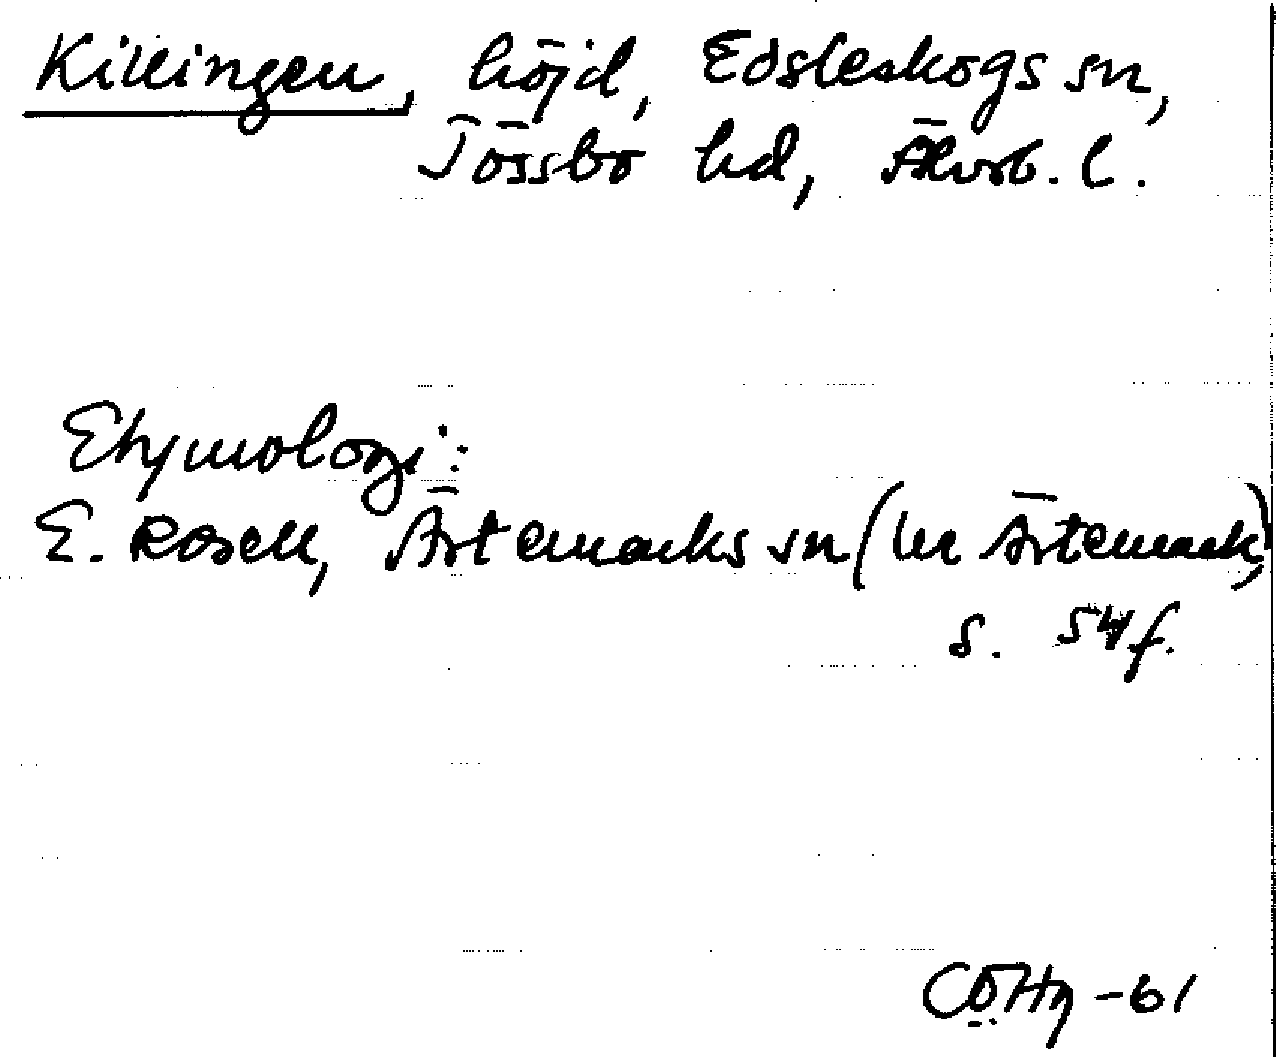 Killingen, höjd, Edsleskogs sn,
Tössbo hd, Älvsb. l.
Etymologi:
E. Rosell, Ärtemarks sn (ur Ärtemark,)
s. 54 f.
CÖHg -61